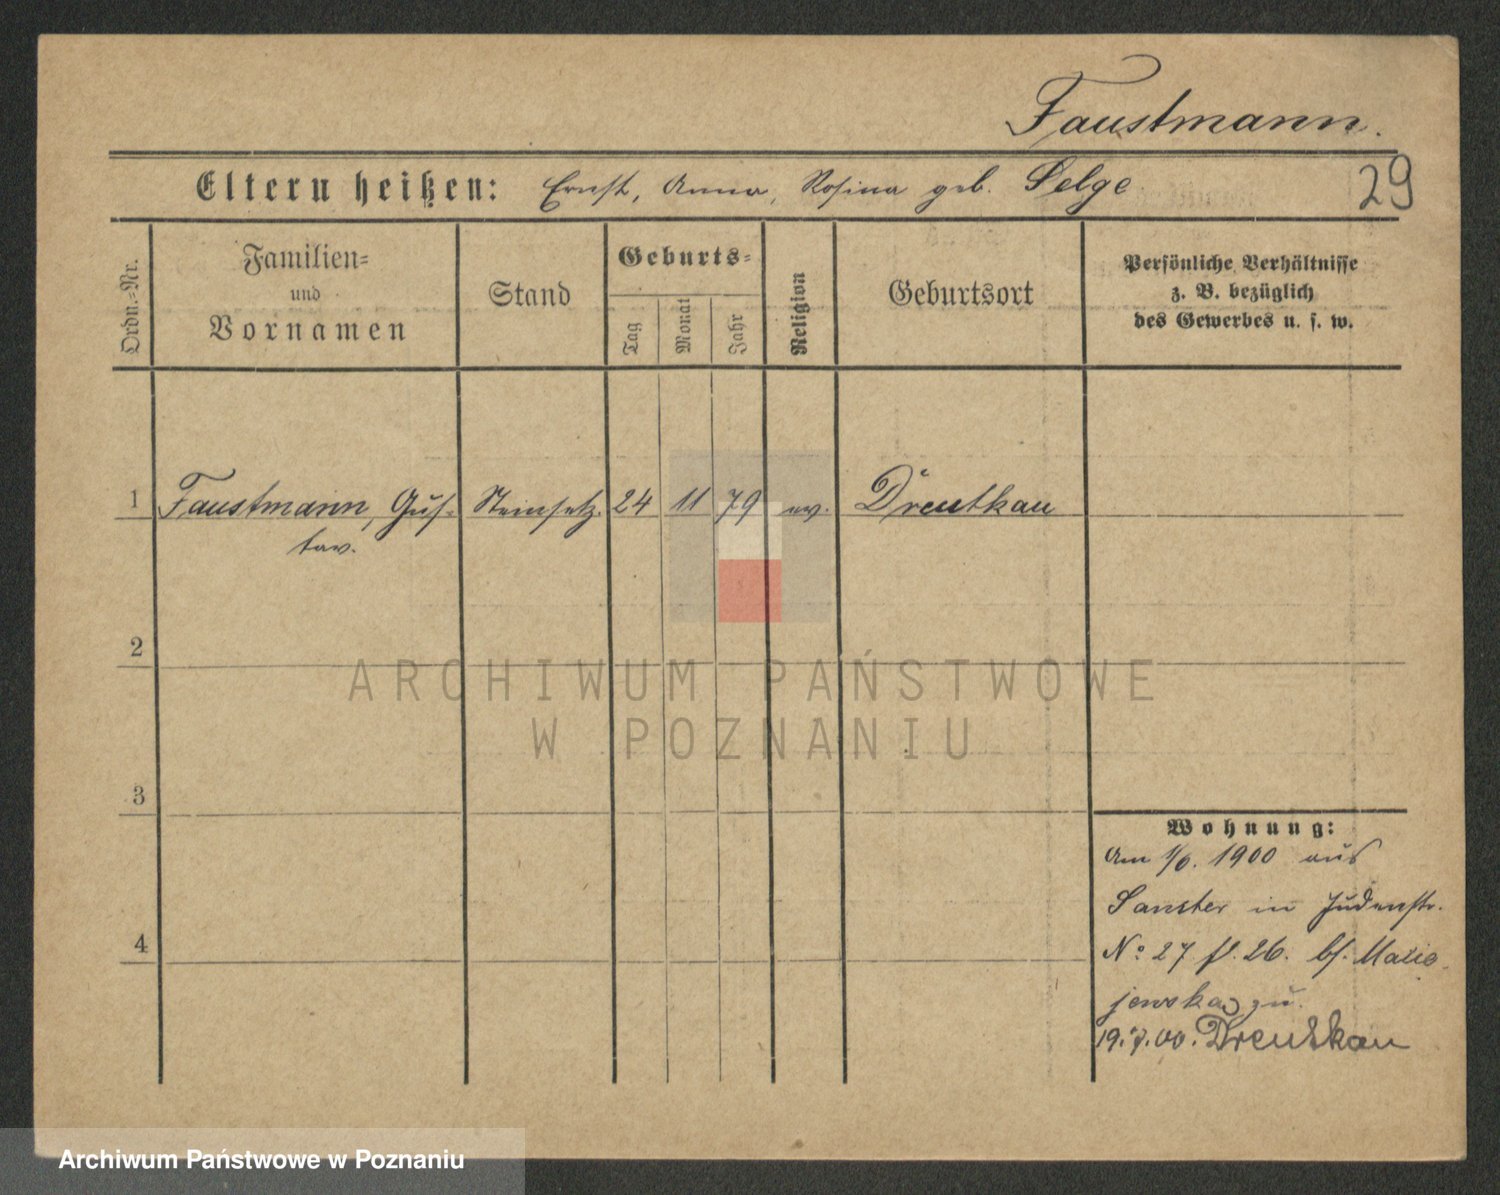 Faustmann.
Eltern heißen: Ernst, Anna, Rosina geb. Selge
29
Ordn.=Nr.
Familien=
und
Vornamen
Stand
Geburts=
Tag
Monat
Jahr
Religion
Geburtsort
Persönliche Verhältnisse
z. B. bezüglich
des Gewerbes u. s. w.
1 Faustmann, Gus= Steinsetz. 24 11 79 ev. Drentkau
tav.
2
3
4
Wohnung:
Am 1900 aus
in Judenstr.
No 27 26. bs.
jewska zu.
19.7.00. Drentkau
ARCHIWUM PAŃSTWOWE
W POZNANIU
Archiwum Państwowe w Poznaniu